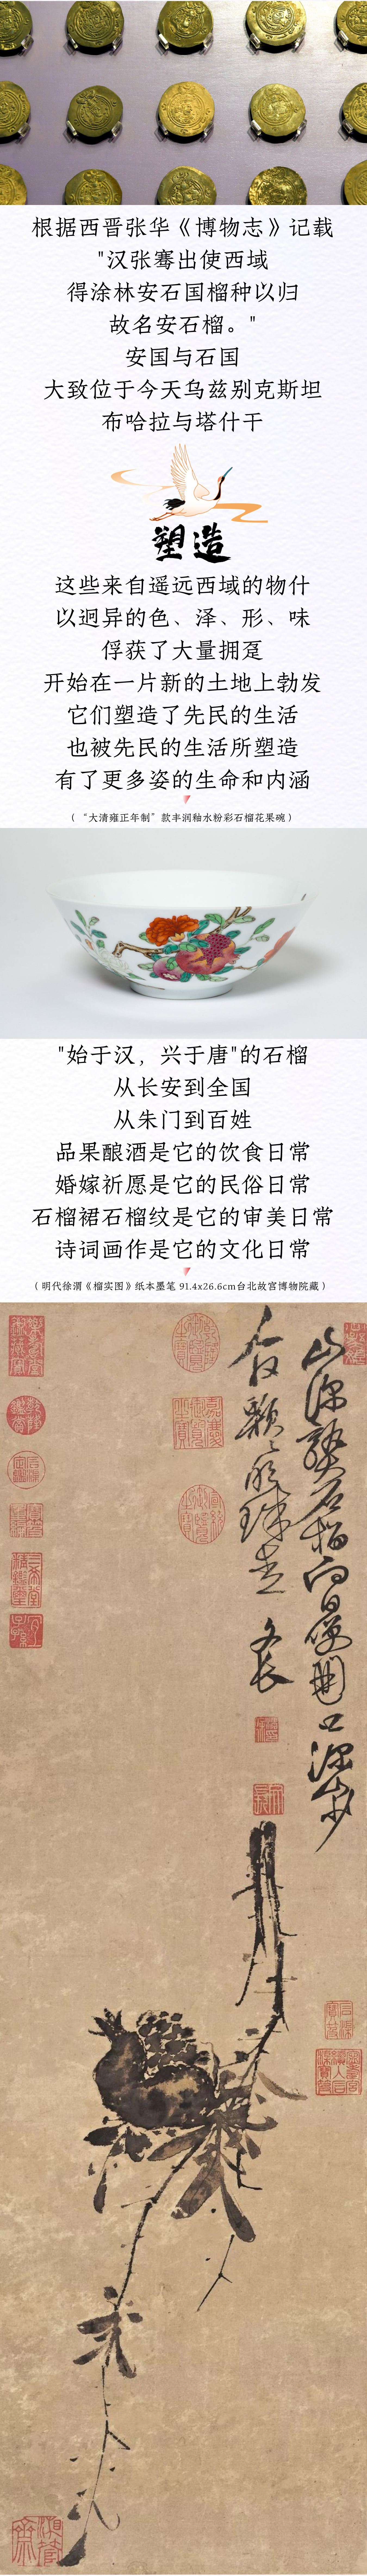 根据西晋张华《博物志》记载
"汉张骞出使西域
得涂林安石国榴种以归
故名安石榴。"
安国与石国
大致位于今天乌兹别克斯坦
布哈拉与塔什干
塑造
这些来自遥远西域的物什
以迥异的色、泽、形、味
俘获了大量拥趸
开始在一片新的土地上勃发
它们塑造了先民的生活
也被先民的生活所塑造
有了更多姿的生命和内涵
（“大清雍正年制”款丰润釉水粉彩石榴花果碗）
"始于汉，兴于唐"的石榴
从长安到全国
从朱门到百姓
品果酿酒是它的饮食日常
婚嫁祈愿是它的民俗日常
石榴裙石榴纹是它的审美日常
诗词画作是它的文化日常
（明代徐渭《榴实图》纸本墨笔 91.4x26.6cm台北故宫博物院藏）
山深熟石榴向日便開口深山少
人收顆顆明珠走
文長